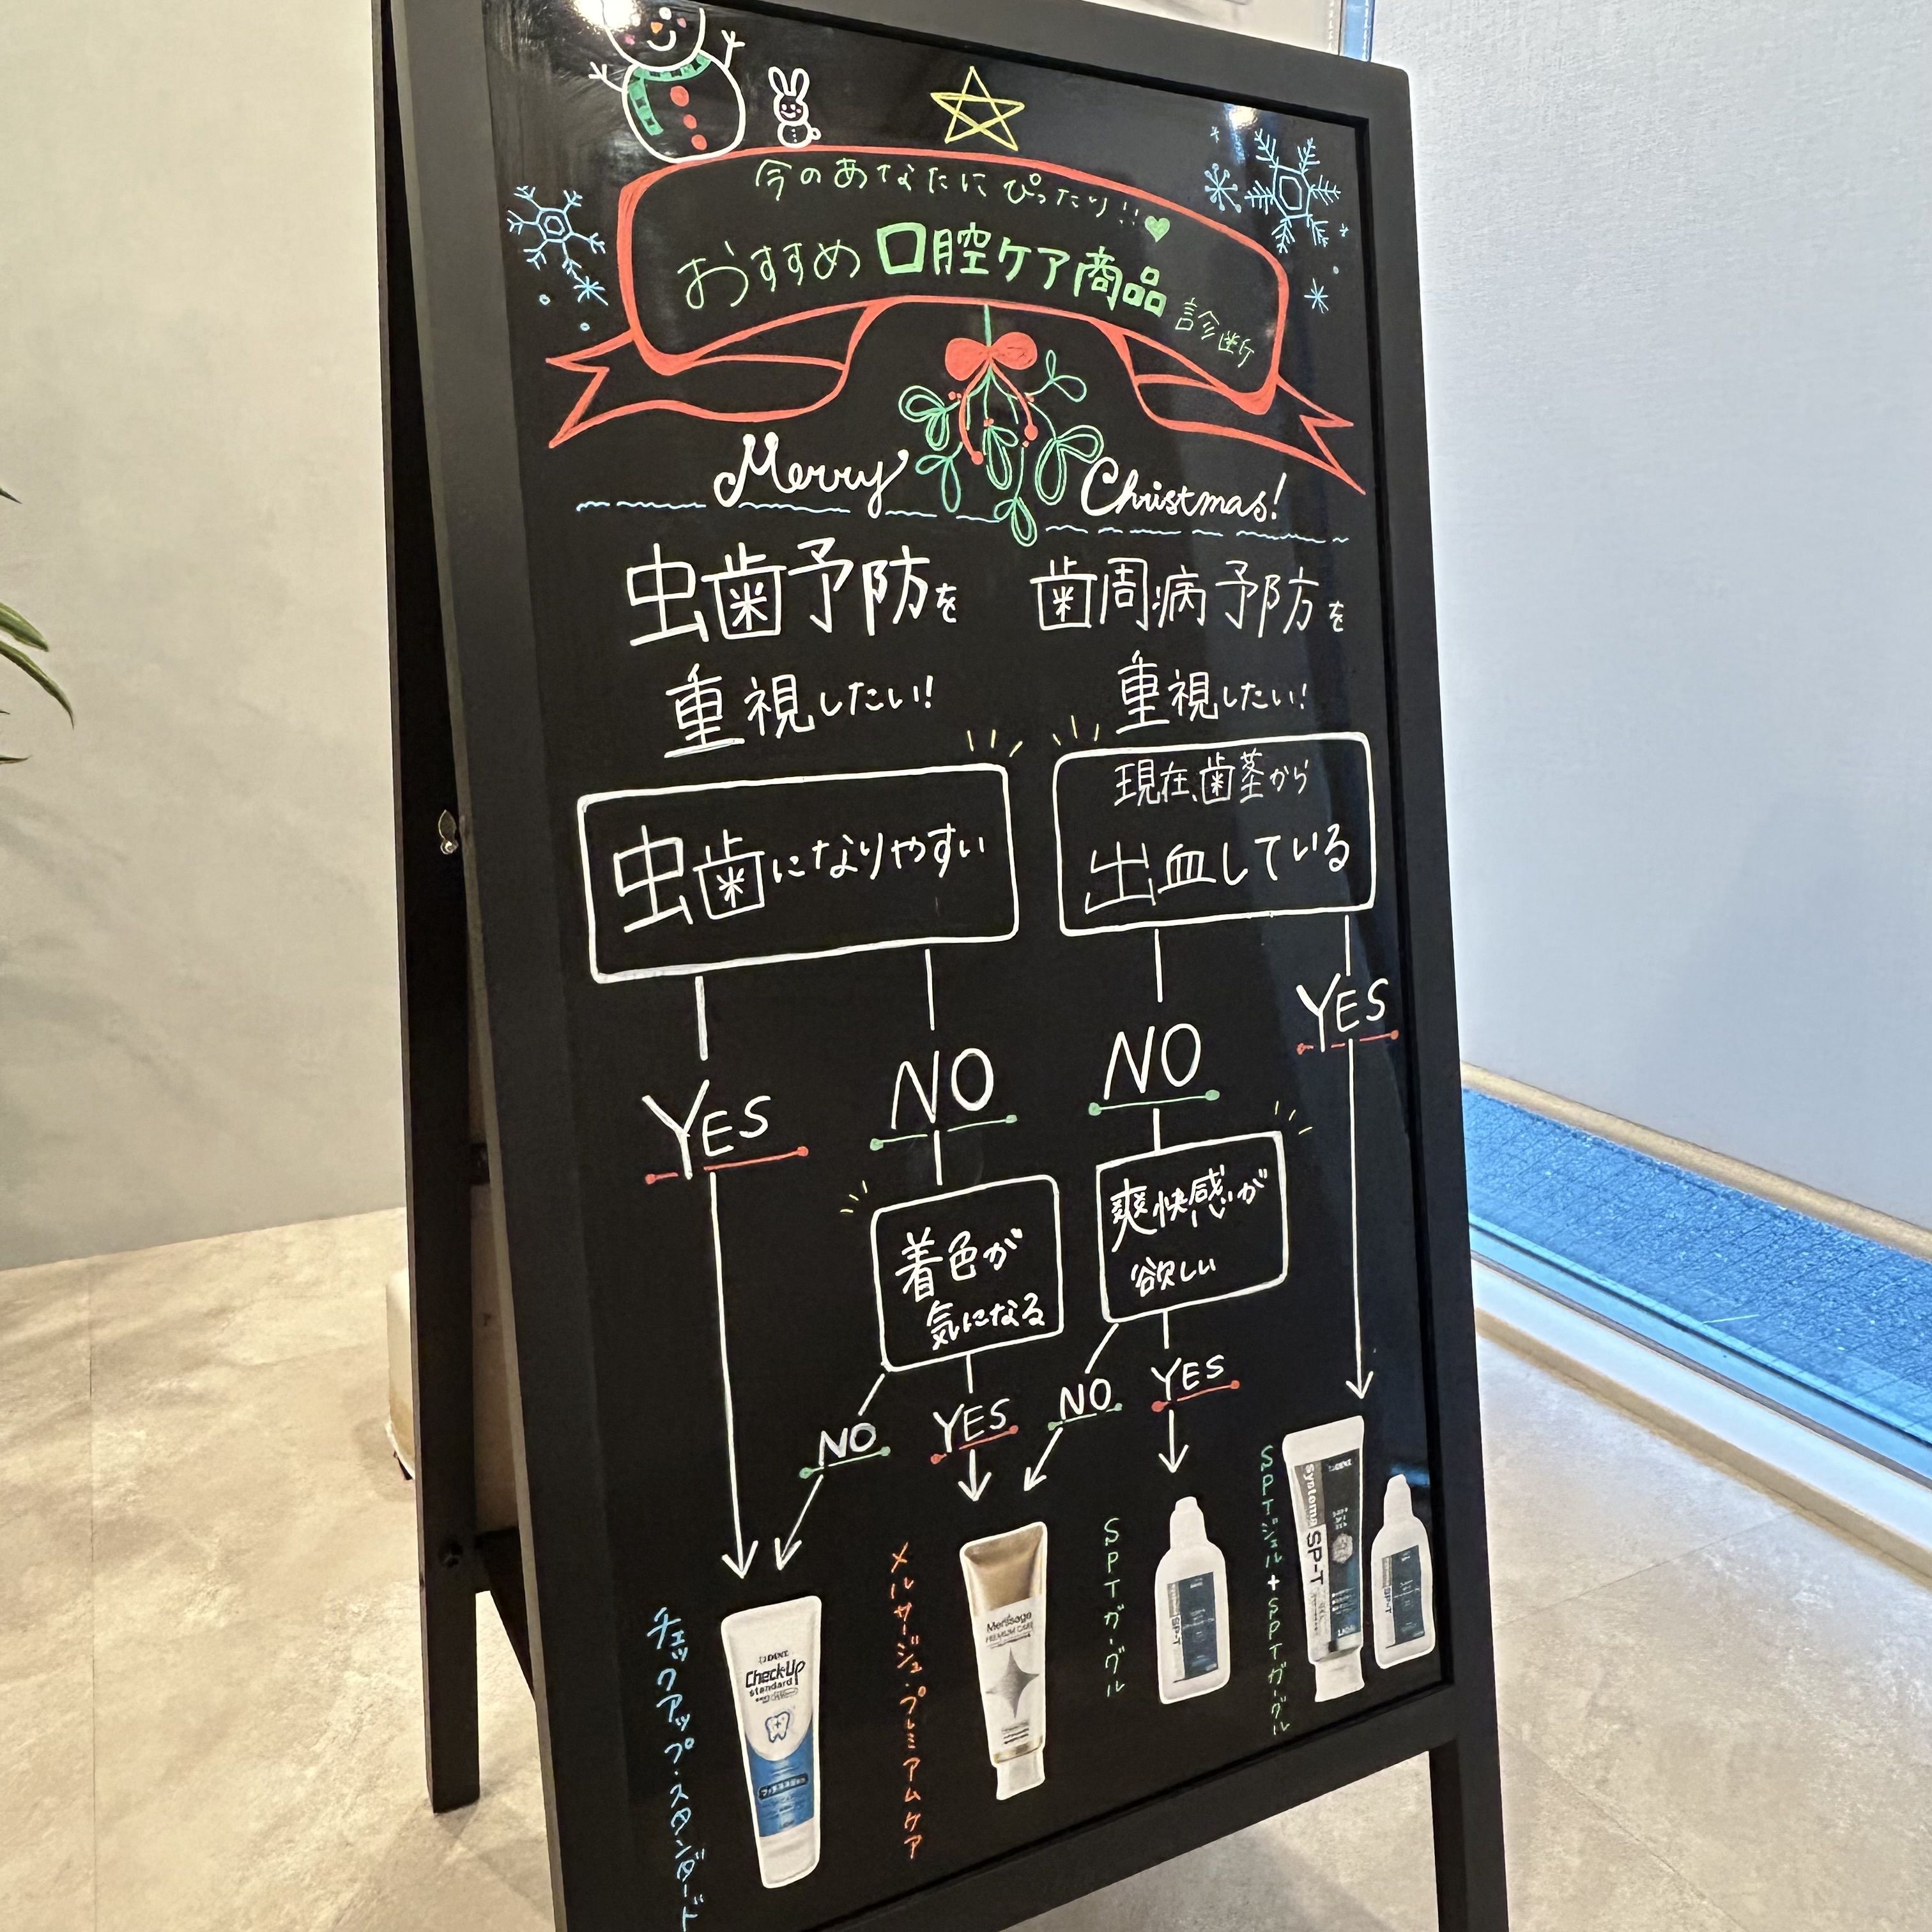 今のあなたにぴったり!!
おすすめ口腔ケア商品診断
Merry Christmas!
虫歯予防を
重視したい!
歯周病予防を
重視したい!
虫歯になりやすい
現在、歯茎から
出血している
YES
NO
NO
YES
着色が
気になる
爽快感が
欲しい
NO
YES
NO
YES
チェックアップ・スタンダード
DENT
Check-Up
standard
メルサージュ・プレミアムケア
Merssage
PREMIUM CARE
SPTガーグル
SP-T
SPTジェル+SPTガーグル
Systema
SP-T
DENT
SP-T